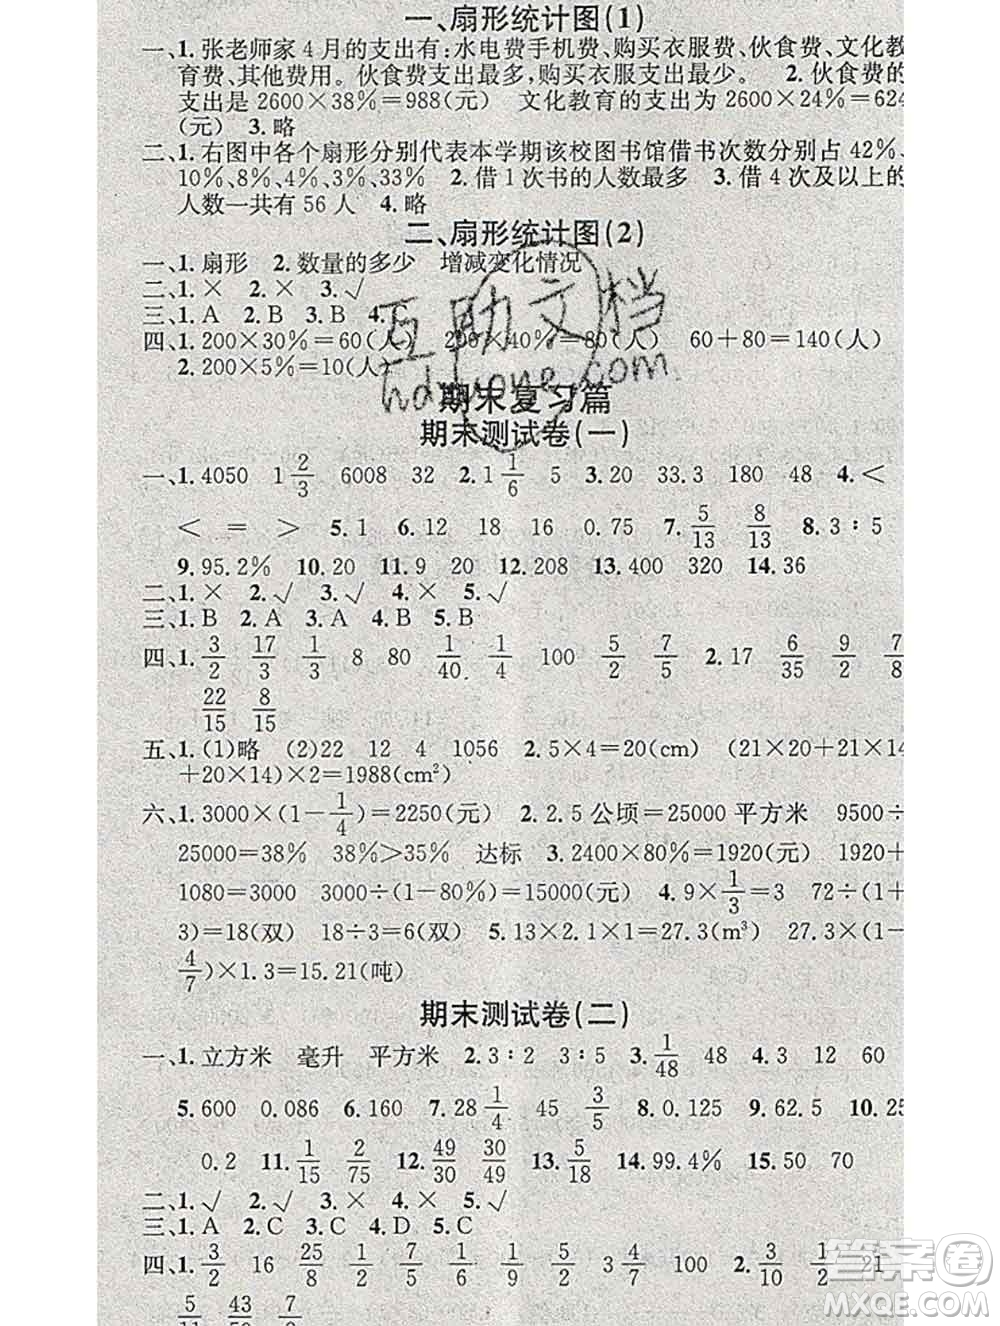 一、扇形统计图(1)
一、1. 张老师家4月的支出有:水电费手机费、购买衣服费、伙食费、文化教
育费、其他费用。伙食费支出最多,购买衣服支出最少。 2. 伙食费的
支出是2600×38%=988(元) 文化教育的支出为2600×24%=624
(元) 3. 略
二、1. 右图中各个扇形分别代表本学期该校图书馆借书次数分别占42%、
10%、8%、4%、3%、33% 2. 借1次书的人数最多 3. 借4次及以上的
人数一共有56人 4. 略
二、扇形统计图(2)
一、1. 扇形 2. 数量的多少 增减变化情况
二、1. × 2. × 3. √
三、1. A 2. B 3. B 4. C
四、1. 200×30%=60(人) 200×40%=80(人) 60+80=140(人)
2. 200×5%=10(人)
互助文档
hdzuoye.com
期末复习篇
期末测试卷(一)
一、1. 4050 1 2/3 6008 32 2. 1 1/6 5 3. 20 33.3 180 48 4. <
< = > 5. 1 6. 12 18 16 0.75 7. 5/13 8/13 8. 3∶5
9. 95.2% 10. 20 11. 9 20 12. 208 13. 400 320 14. 36
二、1. × 2. √ 3. √ 4. × 5. √
三、1. B 2. A 3. A 4. B 5. B
四、1. 3/2 17/3 1/3 8 80 1/40 1/4 100 5/2 7/5 2. 17 6/35 9/2 7/8
22/15 8/15
五、1. (1)略 (2)22 12 4 1056 2. 5×4=20(cm) (21×20+21×14
+20×14)×2=1988(cm²)
六、1. 3000×(1-1/4)=2250(元) 2. 2.5公顷=25000平方米 9500÷
25000=38% 38%>35% 达标 3. 2400×80%=1920(元) 1920+
1080=3000 3000÷(1-80%)=15000(元) 4. 9×1/3=3 72÷(1+
3)=18(双) 18÷3=6(双) 5. 13×2.1×1=27.3(m³) 27.3×(1-
4/7)×1.3=15.21(吨)
期末测试卷(二)
一、1. 立方米 毫升 平方米 2. 3∶2 3∶5 3. 1/48 48 4. 3 12 60
5. 600 0.086 6. 160 7. 28 1/4 45 3/5 8. 0.125 9. 62.5 10. 25
0.2 11. 1/15 2/75 12. 49/30 30/49 13. 5/18 14. 99.4% 15. 50 70
二、1. √ 2. √ 3. × 4. × 5. √
三、1. A 2. C 3. C 4. D 5. C
四、1. 3/2 16 25/8 1/2 7/5 5/6 5/8 3 4/7 100 2. 3/10 1/2
5/11 43/50 7/9
答案圈
MXQE.COM